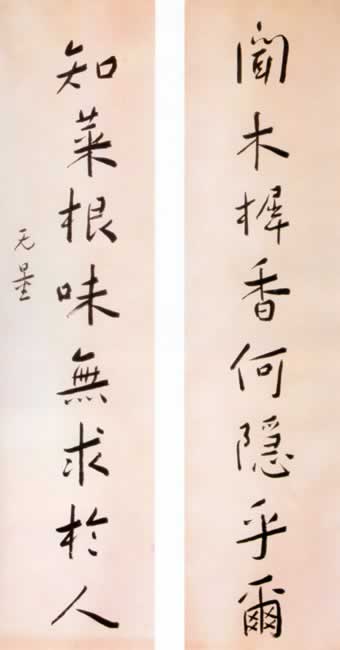 聞木樨香何隱乎爾
知菜根味無求於人
无量